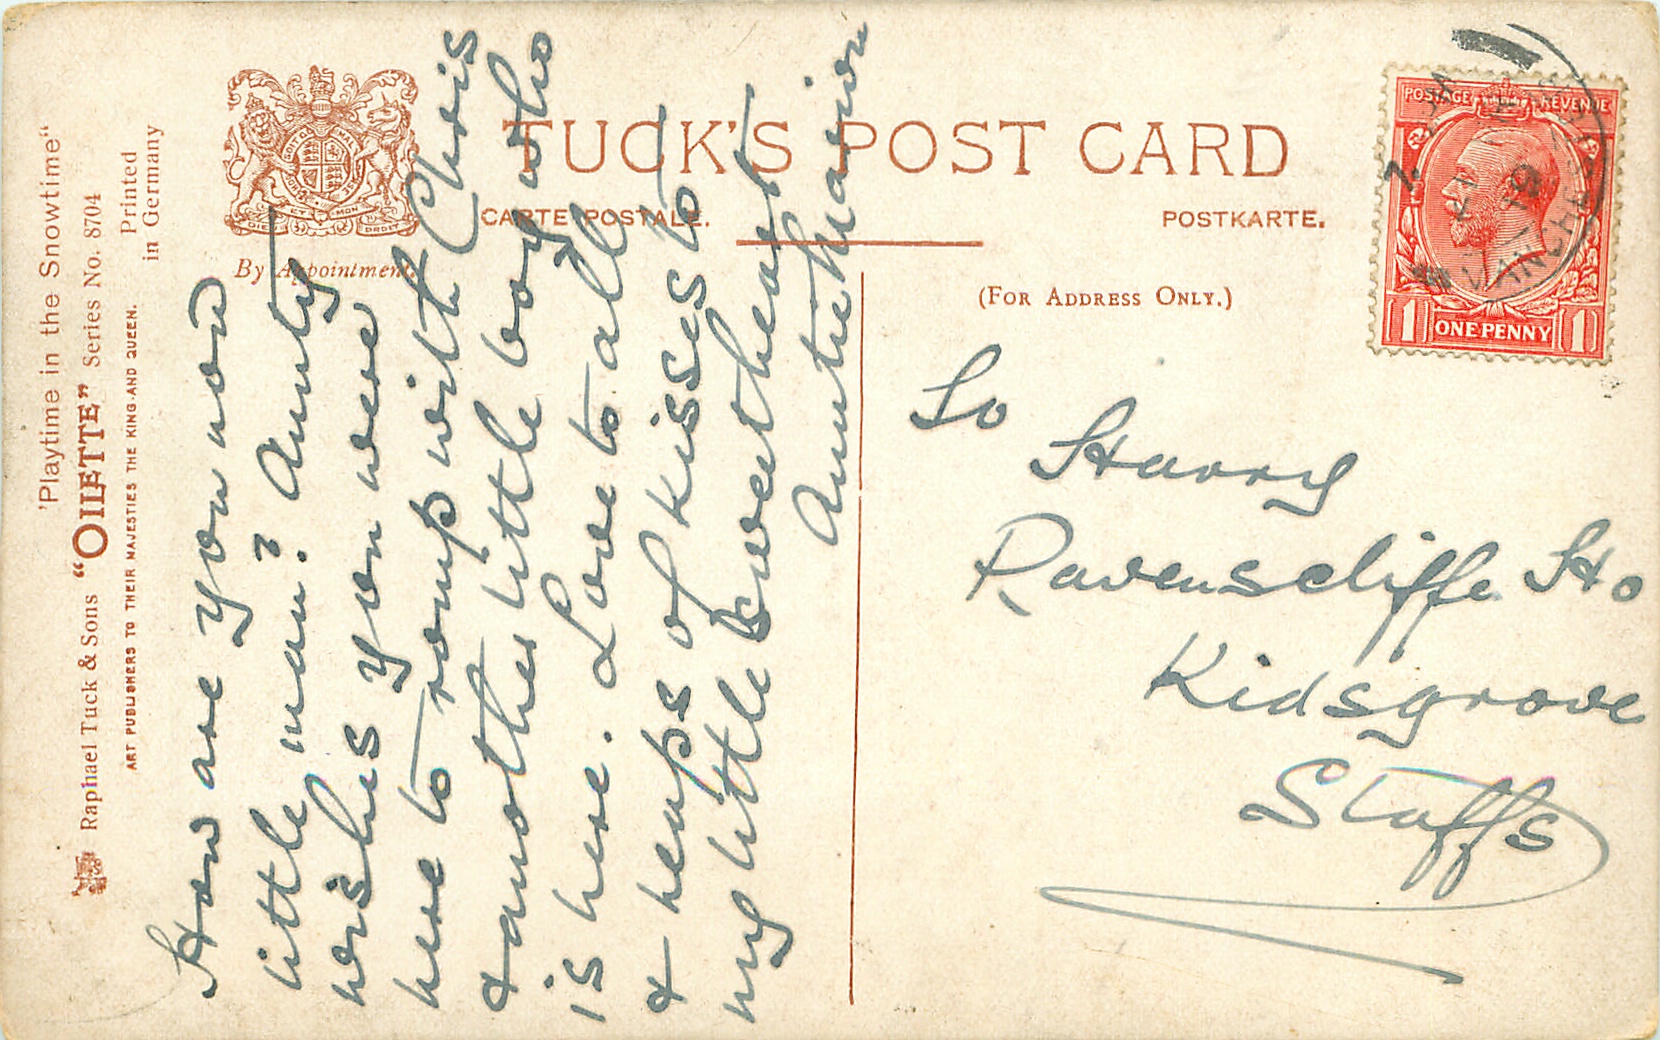 'Playtime in the Snowtime"
Raphael Tuck & Sons "OILETTE" Series No. 8704
ART PUBLISHERS TO THEIR MAJESTIES THE KING AND QUEEN.
Printed
in Germany
By Appointment.
TUCK'S POST CARD
CARTE POSTALE.
POSTKARTE.
(FOR ADDRESS ONLY.)
POSTAGE REVENUE
1 ONE PENNY 1
How are you now
little man? Aunty
wishes you were
here to romp with Chris
& another little boy who
is here. Love to all
& heaps of kisses to
my little sweetheart
Auntie Marion
To
Harry
Ravenscliffe Ho
Kidsgrove
Staffs